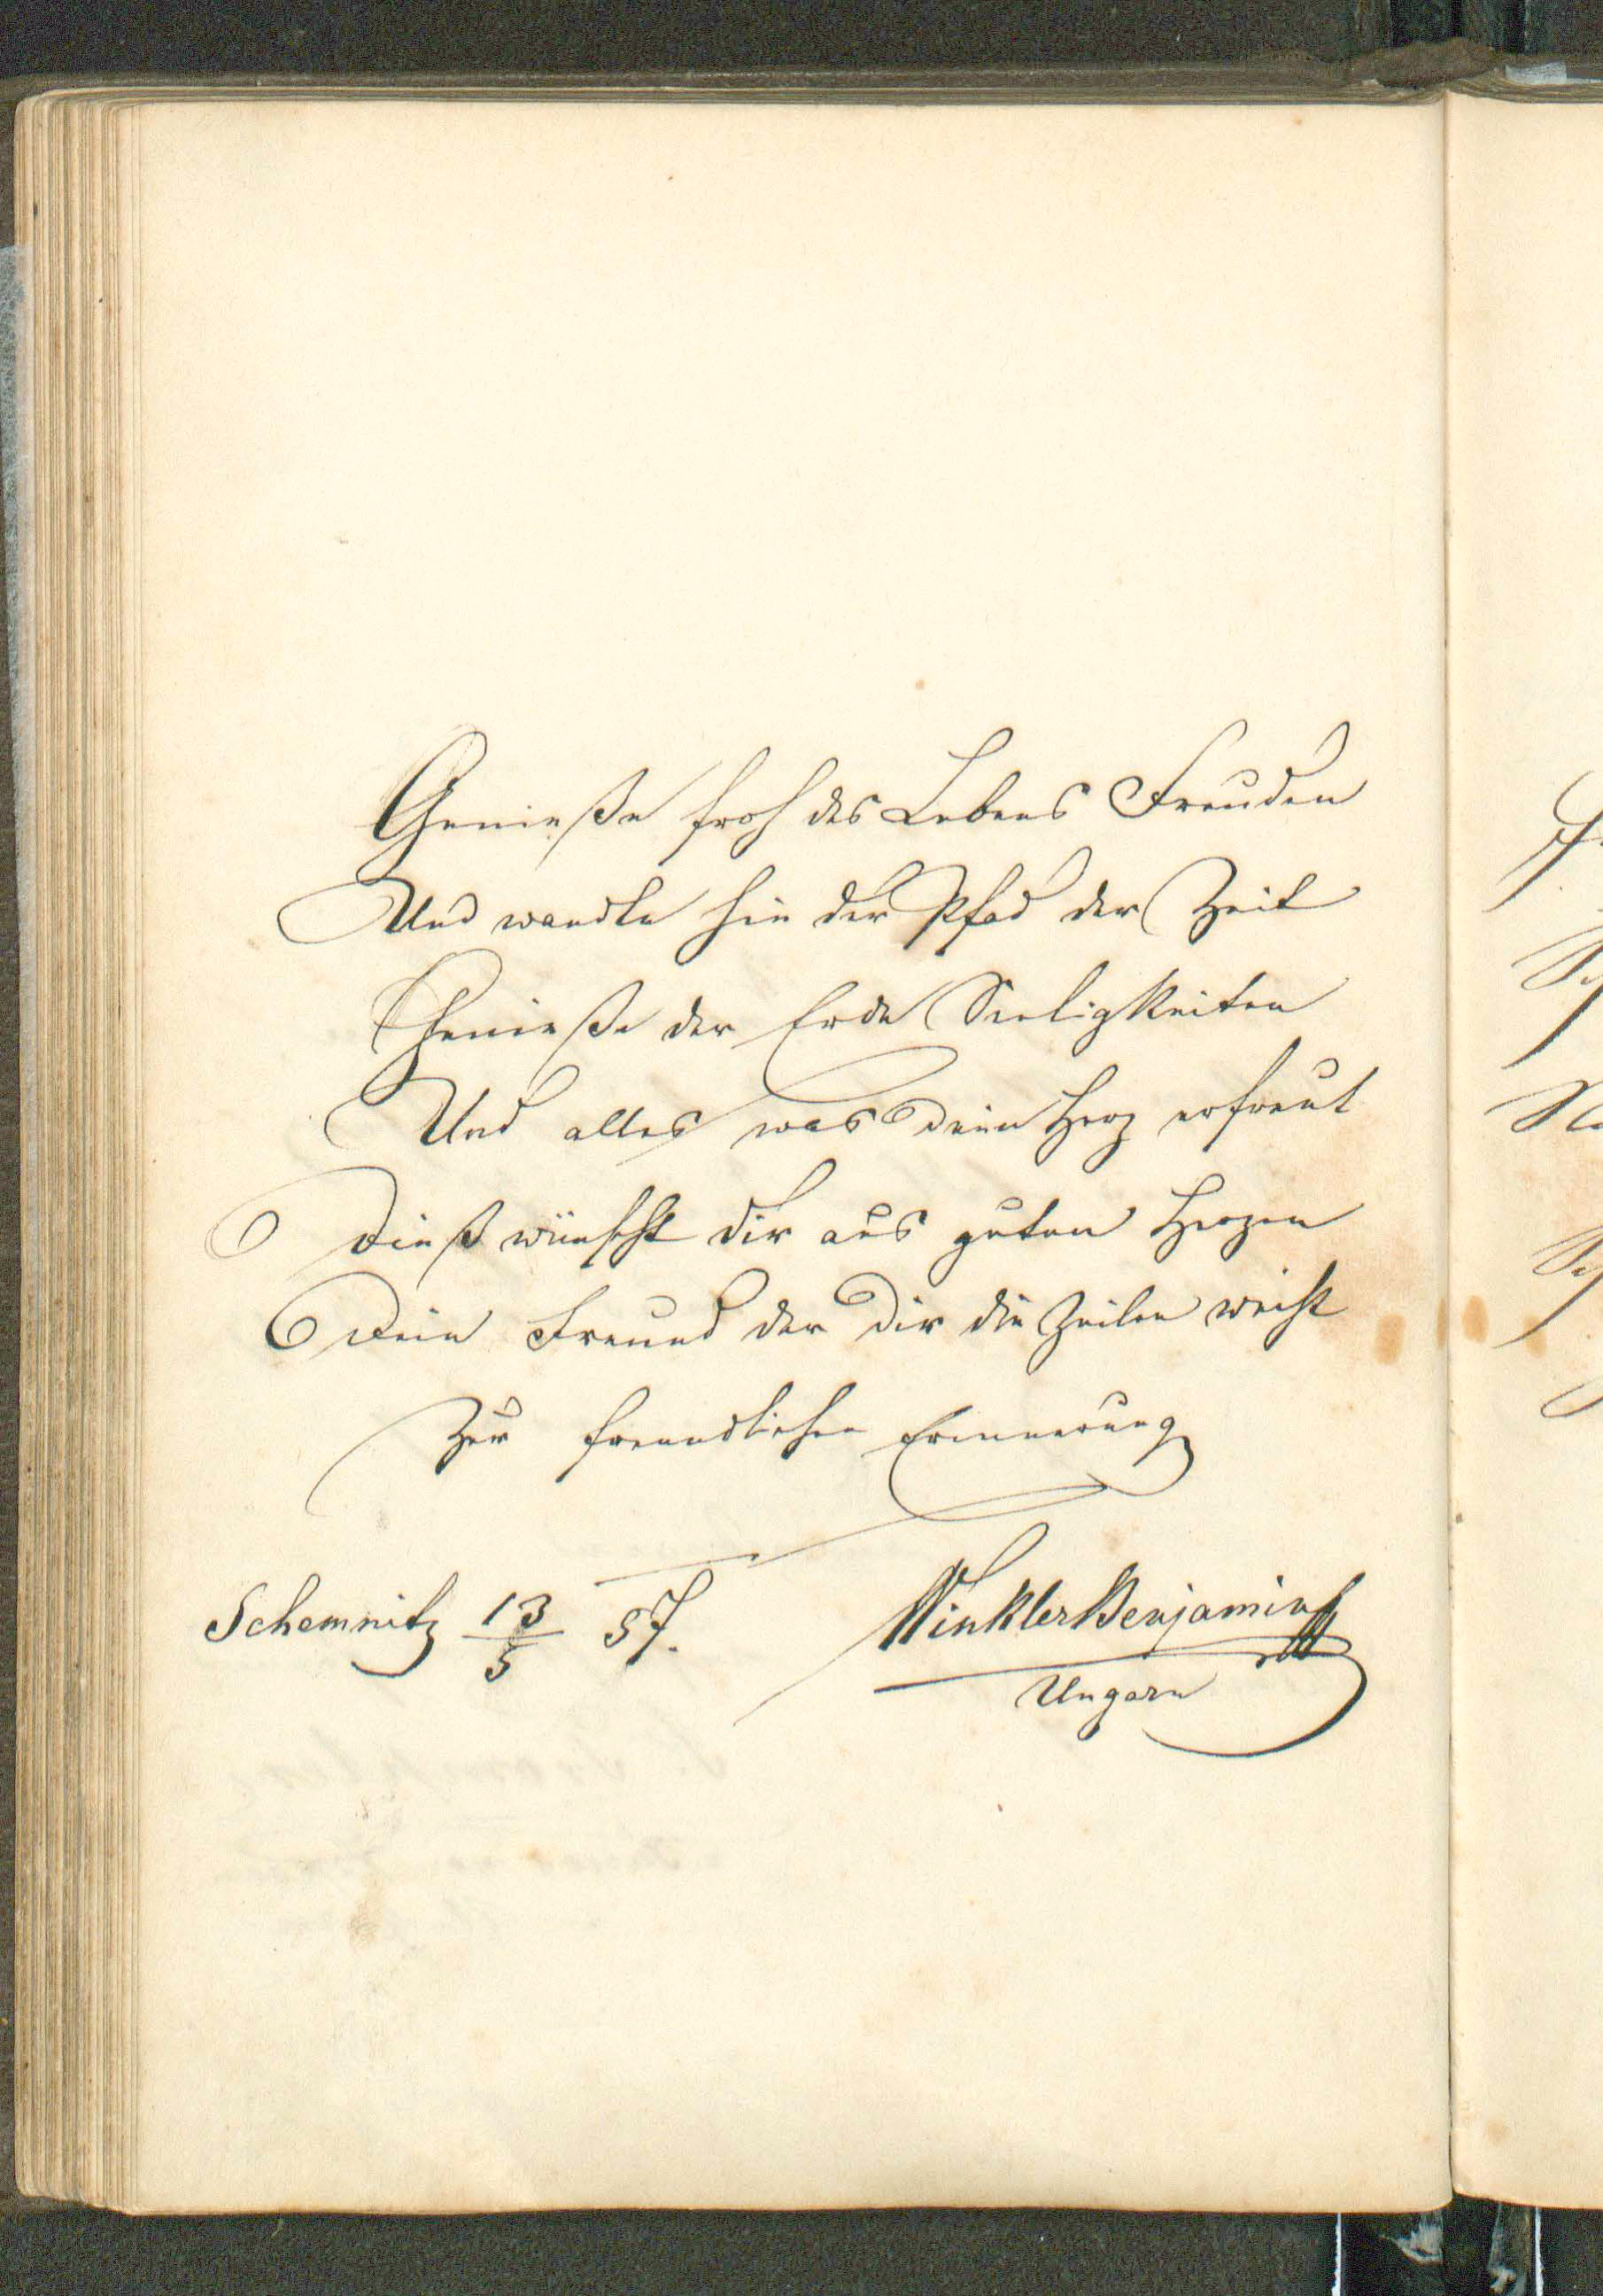 Genieße froh des Lebens Freuden
Und wandle hin der Pfad der Zeit
Genieße der Erde Seeligkeiten
Und alles was Dein Herz erfreut
Dieß wünscht dir aus guten Herzen
Dein Freund der Dir die Zeilen weiht
Zur freundlichen Erinnerung
Schemnitz 13/5 57.
Winkler Benjamin
Ungarn